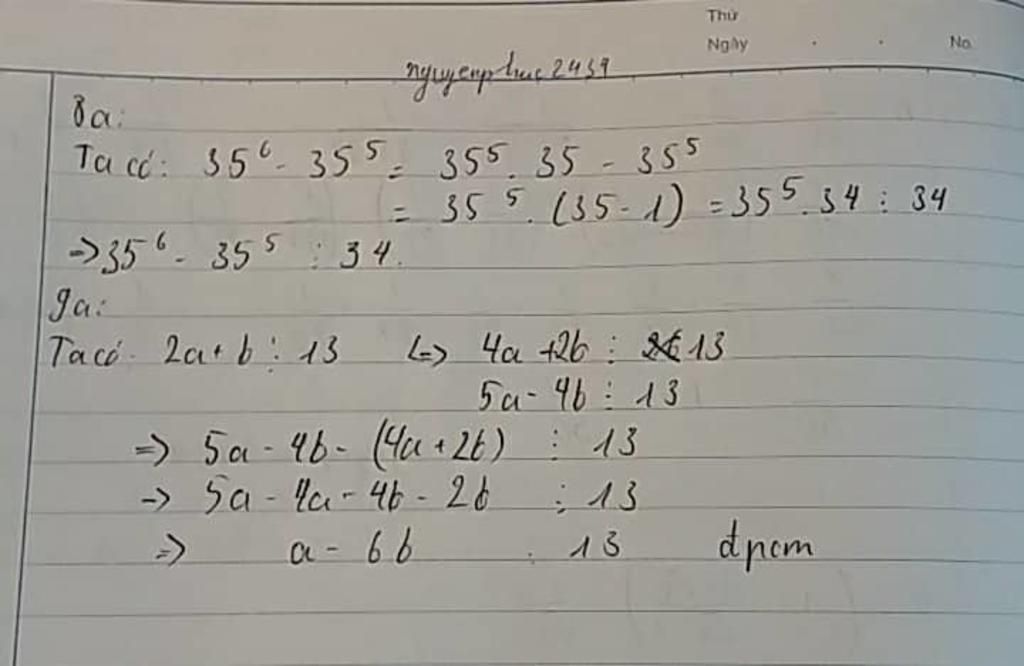 Thứ
Ngày . . No.
nguyenphuc2439
8a:
Ta có: 35⁶ - 35⁵ = 35⁵ . 35 - 35⁵
= 35⁵ . (35 - 1) = 35⁵ . 34 ⋮ 34
=> 35⁶ - 35⁵ ⋮ 34.
9a:
Ta có 2a + b ⋮ 13 <=> 4a + 2b ⋮ 13
5a - 4b ⋮ 13
=> 5a - 4b - (4a + 2b) ⋮ 13
-> 5a - 4a - 4b - 2b ⋮ 13
=> a - 6b . 13 đpcm